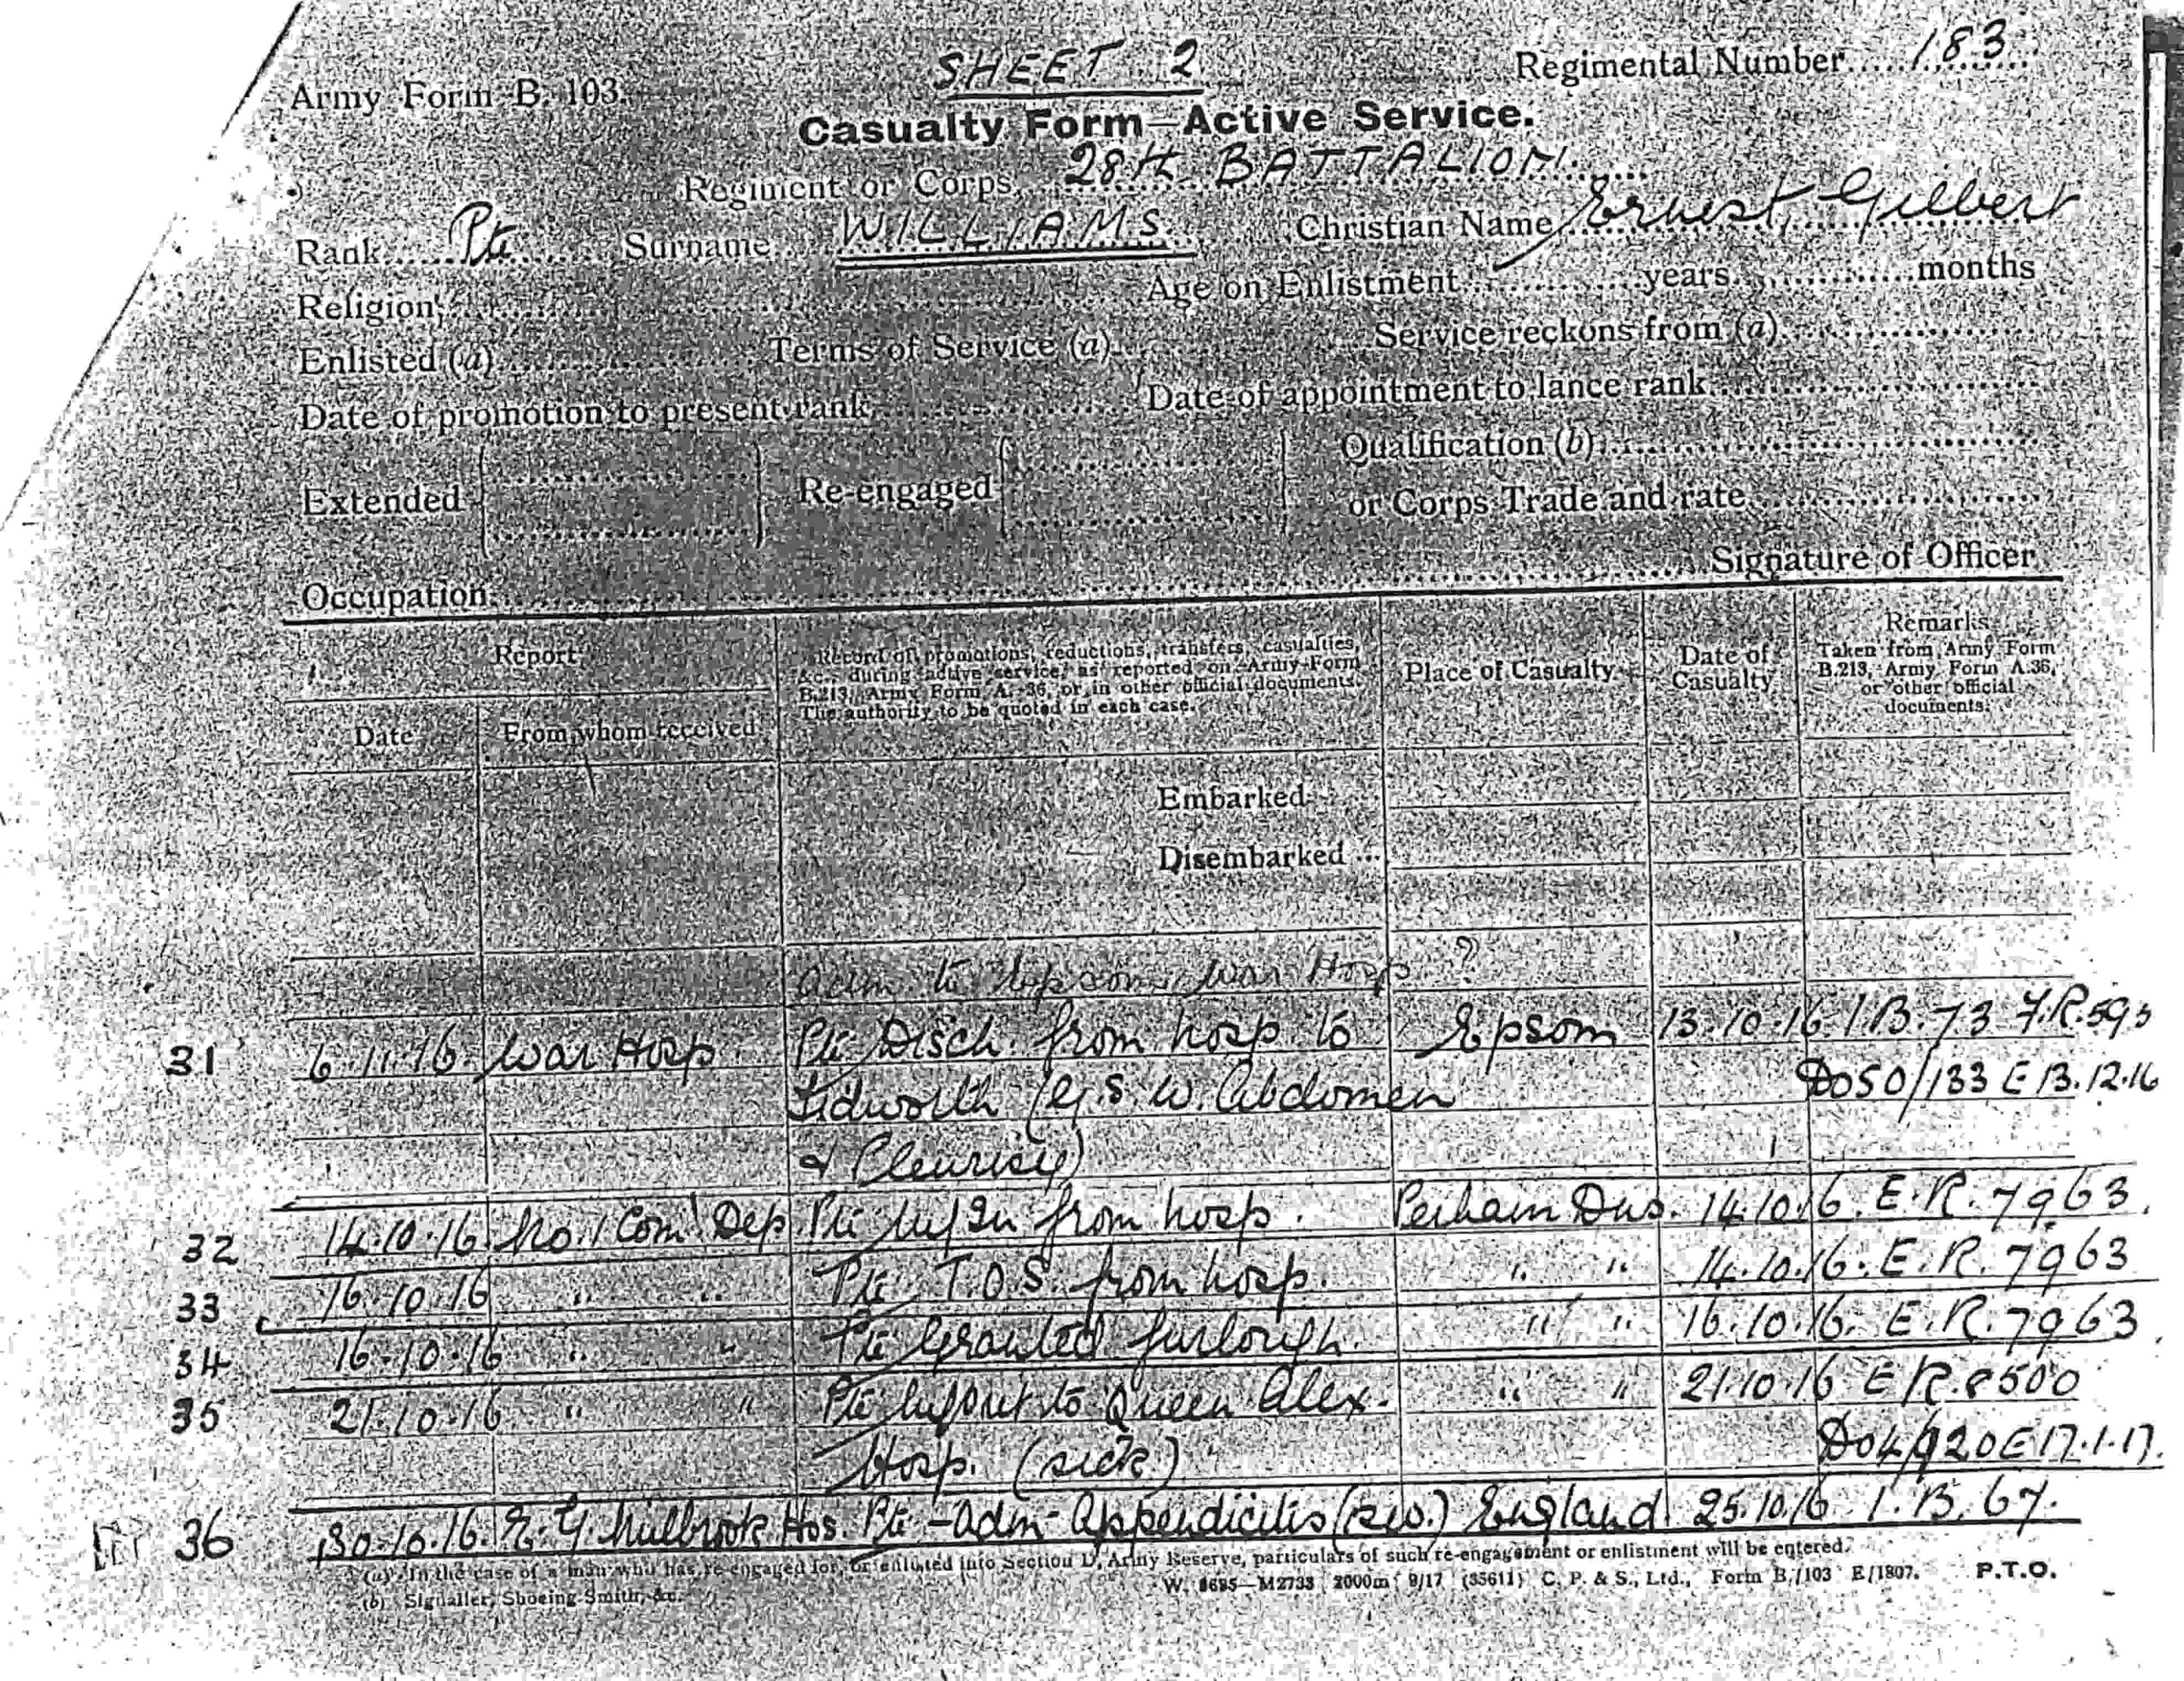 SHEET 2
Regimental Number 183
Army Form B. 103.
Casualty Form—Active Service.
Regiment or Corps 28th BATTALION.
Rank Pte Surname WILLIAMS Christian Name Ernest Gilbert
Religion Age on Enlistment years months
Enlisted (a) Terms of Service (a) Service reckons from (a)
Date of promotion to present rank Date of appointment to lance rank
Extended Re-engaged Qualification (b)
or Corps Trade and rate
Occupation Signature of Officer
Report
Date From whom received
Record of promotions, reductions, transfers, casualties,
&c., during active service, as reported on Army Form
B.213, Army Form A. 36, or in other official documents.
The authority to be quoted in each case.
Place of Casualty
Date of
Casualty
Remarks
Taken from Army Form
B.213, Army Form A.36,
or other official
documents.
Embarked
Disembarked ...
adm to Epsom War Hosp ?
31 6.11.16 War Hosp Pte Disch. from hosp to Epsom 13.10.16 I.B.73 F.R.593
Tidworth (G.S.W. Abdomen DO50/133 E 13.12.16
& Pleurisy)
32 14.10.16 No. 1 Com Dep. Pte In from hosp. Perham Dns. 14.10.16. E.R. 7963.
33 16.10.16 " " Pte T.O.S. from hosp. " " 14.10.16. E.R. 7963
34 16.10.16 " " Pte Granted furlough. " " 16.10.16. E.R. 7963
35 21.10.16 " " Pte out to Queen Alex. " " 21.10.16 E R. 8500
Hosp. (sick) DO4/920E 17.1.17.
36 30.10.16. Millbrook Hos. Pte - adm - Appendicitis (sev.) England 25.10.16 I.B. 67.
(a) In the case of a man who has re-engaged for, or enlisted into Section D, Army Reserve, particulars of such re-engagement or enlistment will be entered.
(b) Signaller, Shoeing Smith, &c. W. 8685—M2733 2000m 9/17 (35611) C. P. & S., Ltd., Form B./103 E/1807. P.T.O.